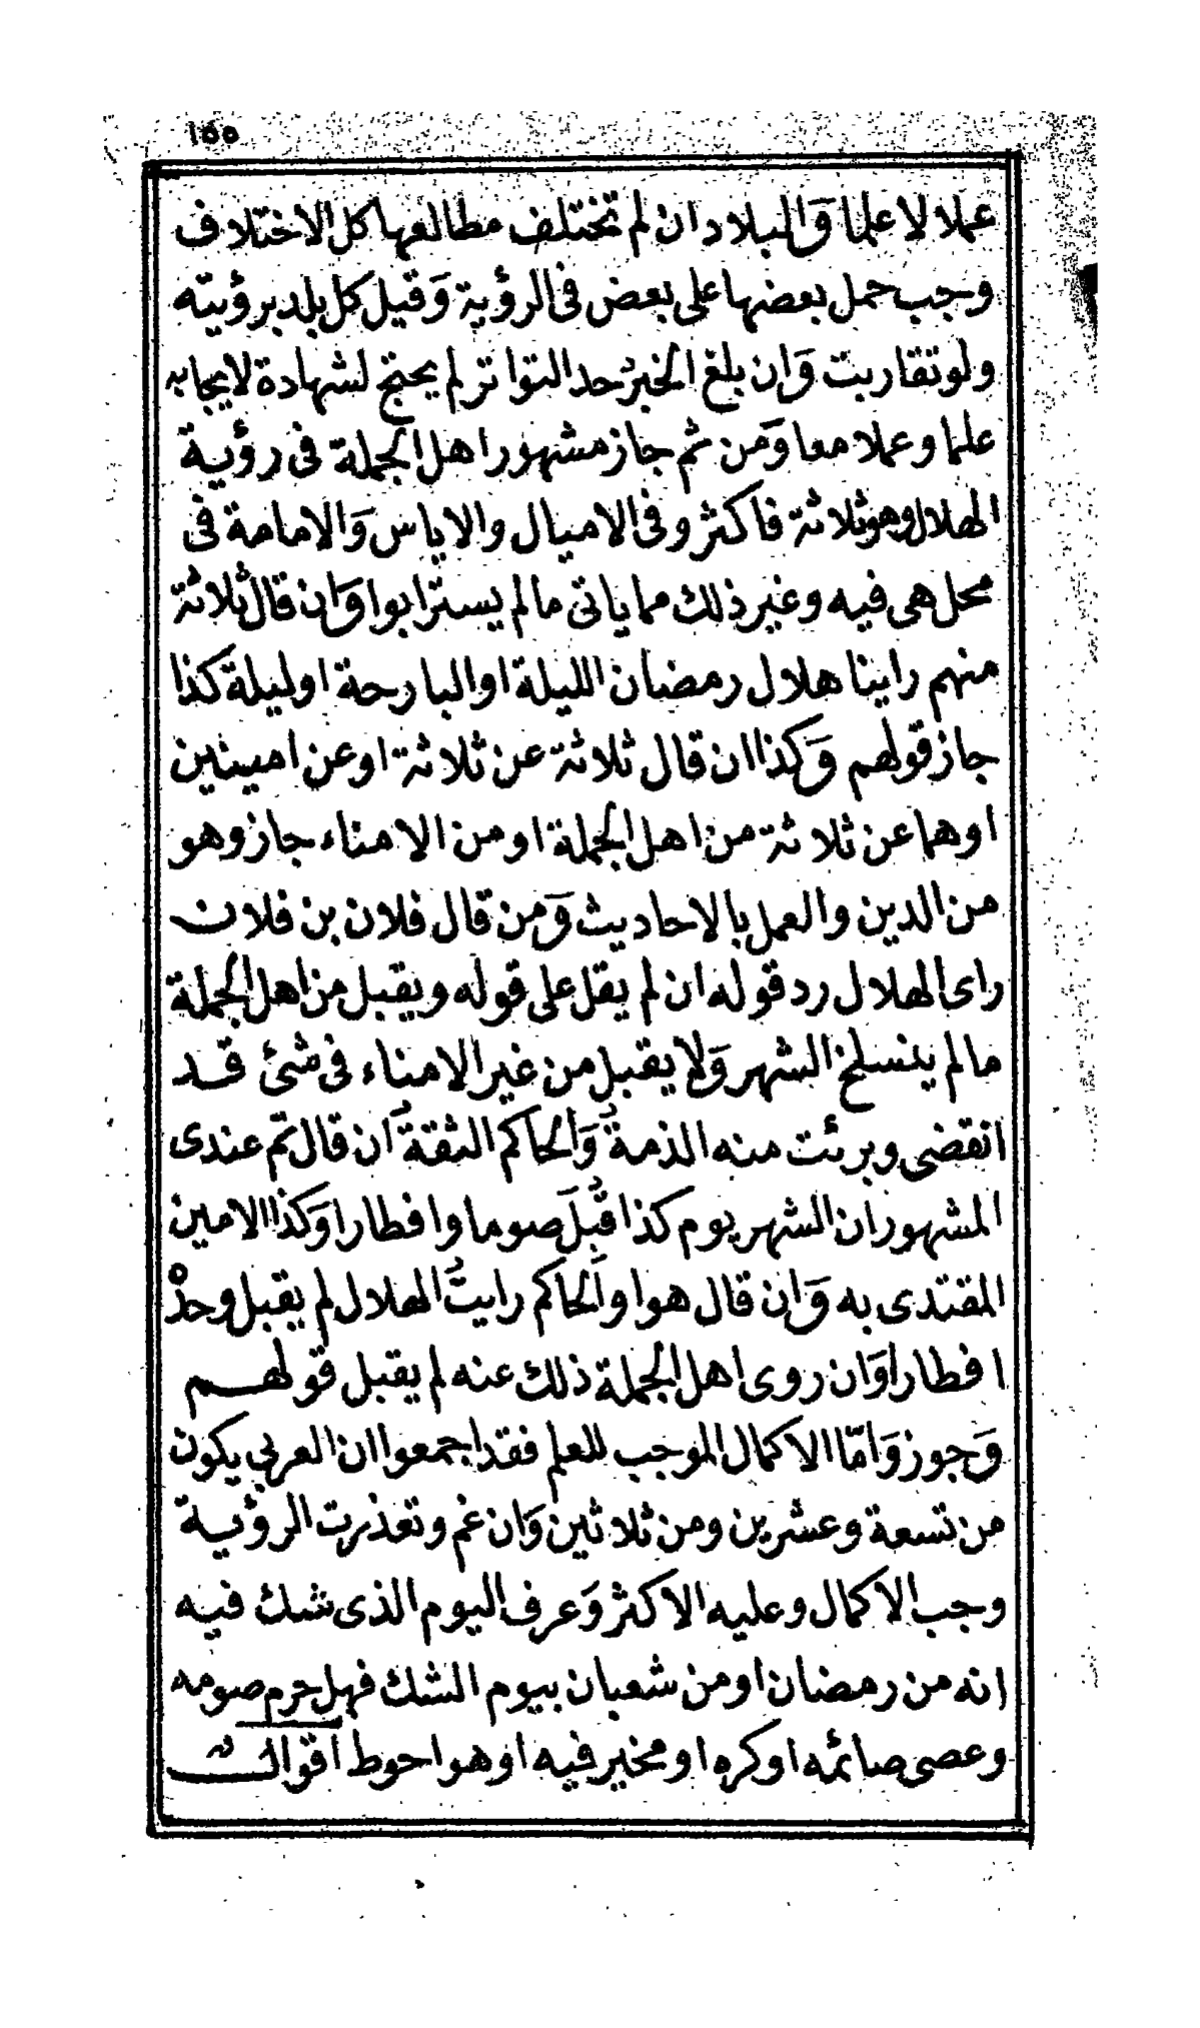 ١٥٥
عملا لا علما وَالبلاد ان لم تختلف مطالعها كل الاختلاف
وجب حمل بعضها على بعض فى الرؤية وَقيل كل بلد برؤيته
ولو تقاربت وَان بلغ الخبرُ حد التواتر لم يحتج لشهادة لايجابه
علما وعملا معا وَمن ثم جاز مشهور اهل الجملة فى رؤية
الهلال وهو ثلاثة فاكثر وفى الاميال والاياس وَالامامة فى
محل هى فيه وغير ذلك مما ياتى ما لم يسترابوا وَان قال ثلاثة
منهم راينا هلال رمضان الليلة او البارحة او ليلة كذا
جاز قولهم وَكذا ان قال ثلاثة عن ثلاثة او عن امينين
او هما عن ثلاثة من اهل الجملة او من الامناء جاز وهو
من الدين والعمل بالاحاديث وَمن قال فلان بن فلان
راى الهلال رد قوله ان لم يقل على قوله ويقبل من اهل الجملة
ما لم ينسلخ الشهر وَلا يقبل من غير الامناء فى شئ قد
انقضى وبرئت منه الذمة وَالحاكم الثقة ان قال تم عندى
المشهور ان الشهر يوم كذا قُبِلَ صوما وافطارا وَكذا الامين
المقتدى به وَان قال هو او الحاكم رايتُ الهلال لم يقبل وحدهْ
افطارا وَان روى اهل الجملة ذلك عنه لم يقبل قولهم
وَجوز وَامّا الاكمال الموجب للعلم فقد اجمعوا ان العربى يكون
من تسعة وعشرين ومن ثلاثين وَان غم وتعذرت الرؤية
وجب الاكمال وعليه الاكثر وَعرف اليوم الذى شك فيه
انه من رمضان او من شعبان بيوم الشك فهل حرم صومه
وعصى صائمه او كره او مخير فيه او هو احوط اقوال